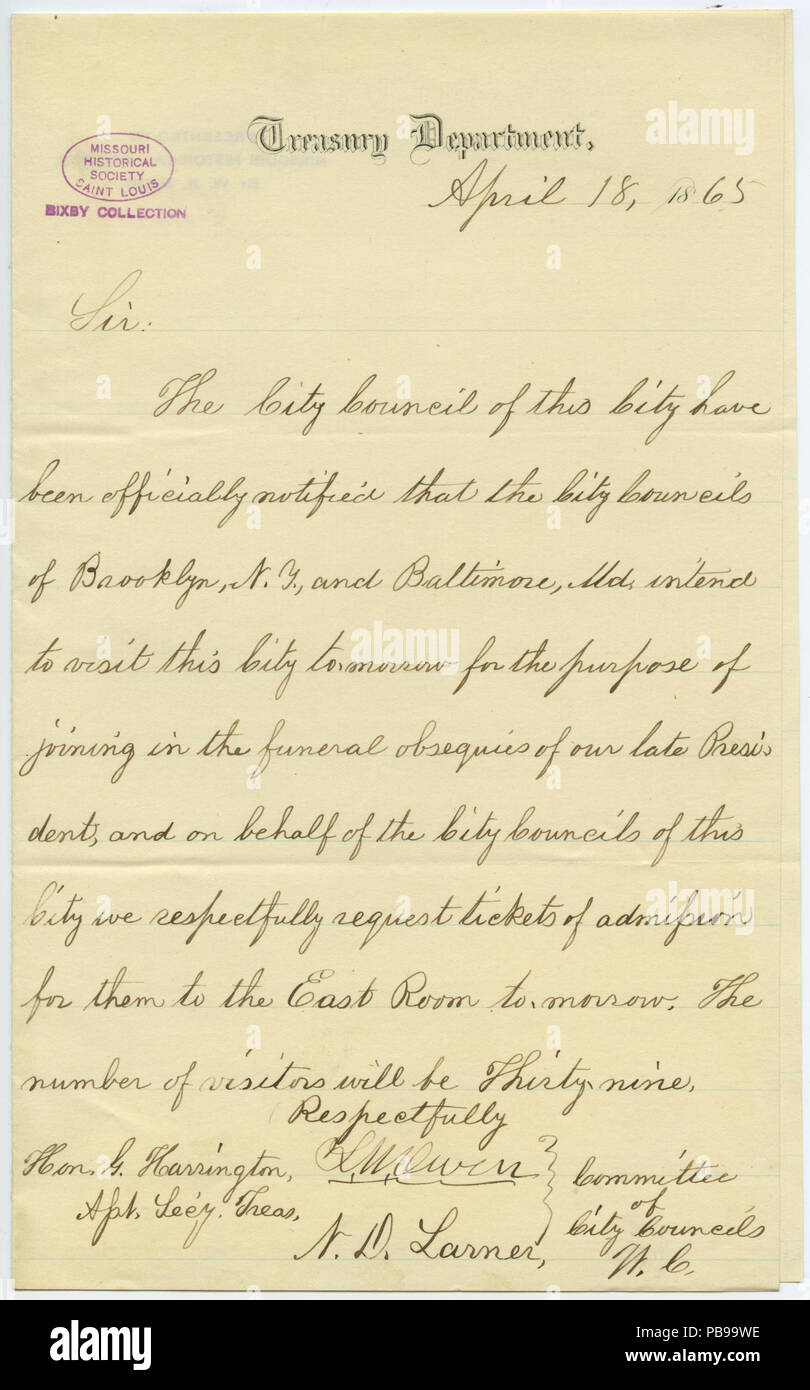 Treasury Department,
MISSOURI
HISTORICAL
SOCIETY
SAINT LOUIS
BIXBY COLLECTION
April 18, 1865
Sir:
The City Council of this City have
been officially notified that the City Councils
of Brooklyn, N. Y., and Baltimore, Md. intend
to visit this City to-morrow for the purpose of
joining in the funeral obsequies of our late Presi-
dent, and on behalf of the City Councils of this
City we respectfully request tickets of admission
for them to the East Room to-morrow. The
number of visitors will be Thirty-nine.
Respectfully
Hon. G. Harrington,
Asst. Secy. Treas.
Owen
N. D. Larner,
Committee
of
City Councils
W. C.
alamy
Image ID: PB99WE
www.alamy.com